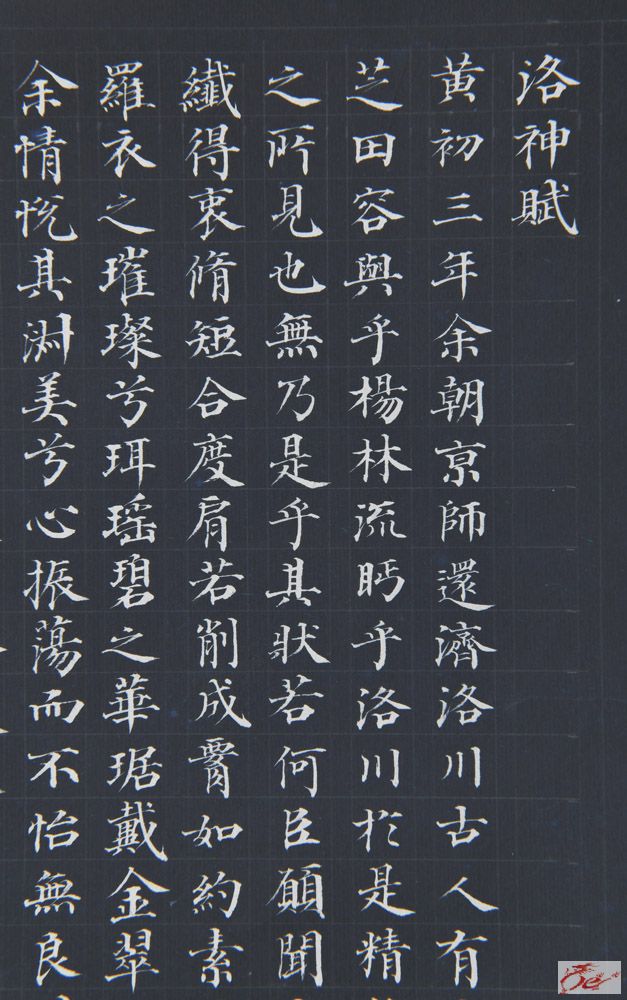 洛神賦
黃初三年余朝京師還濟洛川古人有
芝田容與乎楊林流眄乎洛川於是精
之所見也無乃是乎其狀若何臣願聞
纖得衷脩短合度肩若削成署如約素
羅衣之璀璨兮珥瑶碧之華琚戴金翠
余情悅其淑美兮心振蕩而不怡無良